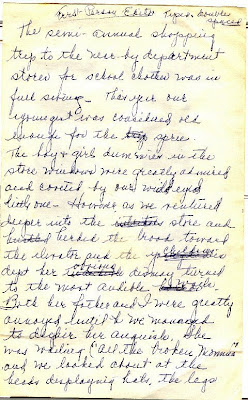 First Person Exerts Typed, doubles spaced
The semi-annual shopping
trip to the near-by department
stores for school clothes was in
full swing - This year our
youngest was considered old
enough for the spree.
The boy & girl dummies in the
store windows were greatly admired
and cooed by our wild eyed
little one - However as we ventured
deeper into the store and
herded the brood toward
the elevator and the children's
dept her obvious dismay turned
to the most audible
Both her father and I were greatly
annoyed until we managed
to decipher her anguish. She
was wailing "all the broken mommies"
and we looked about at the
heads displaying hats, the legs